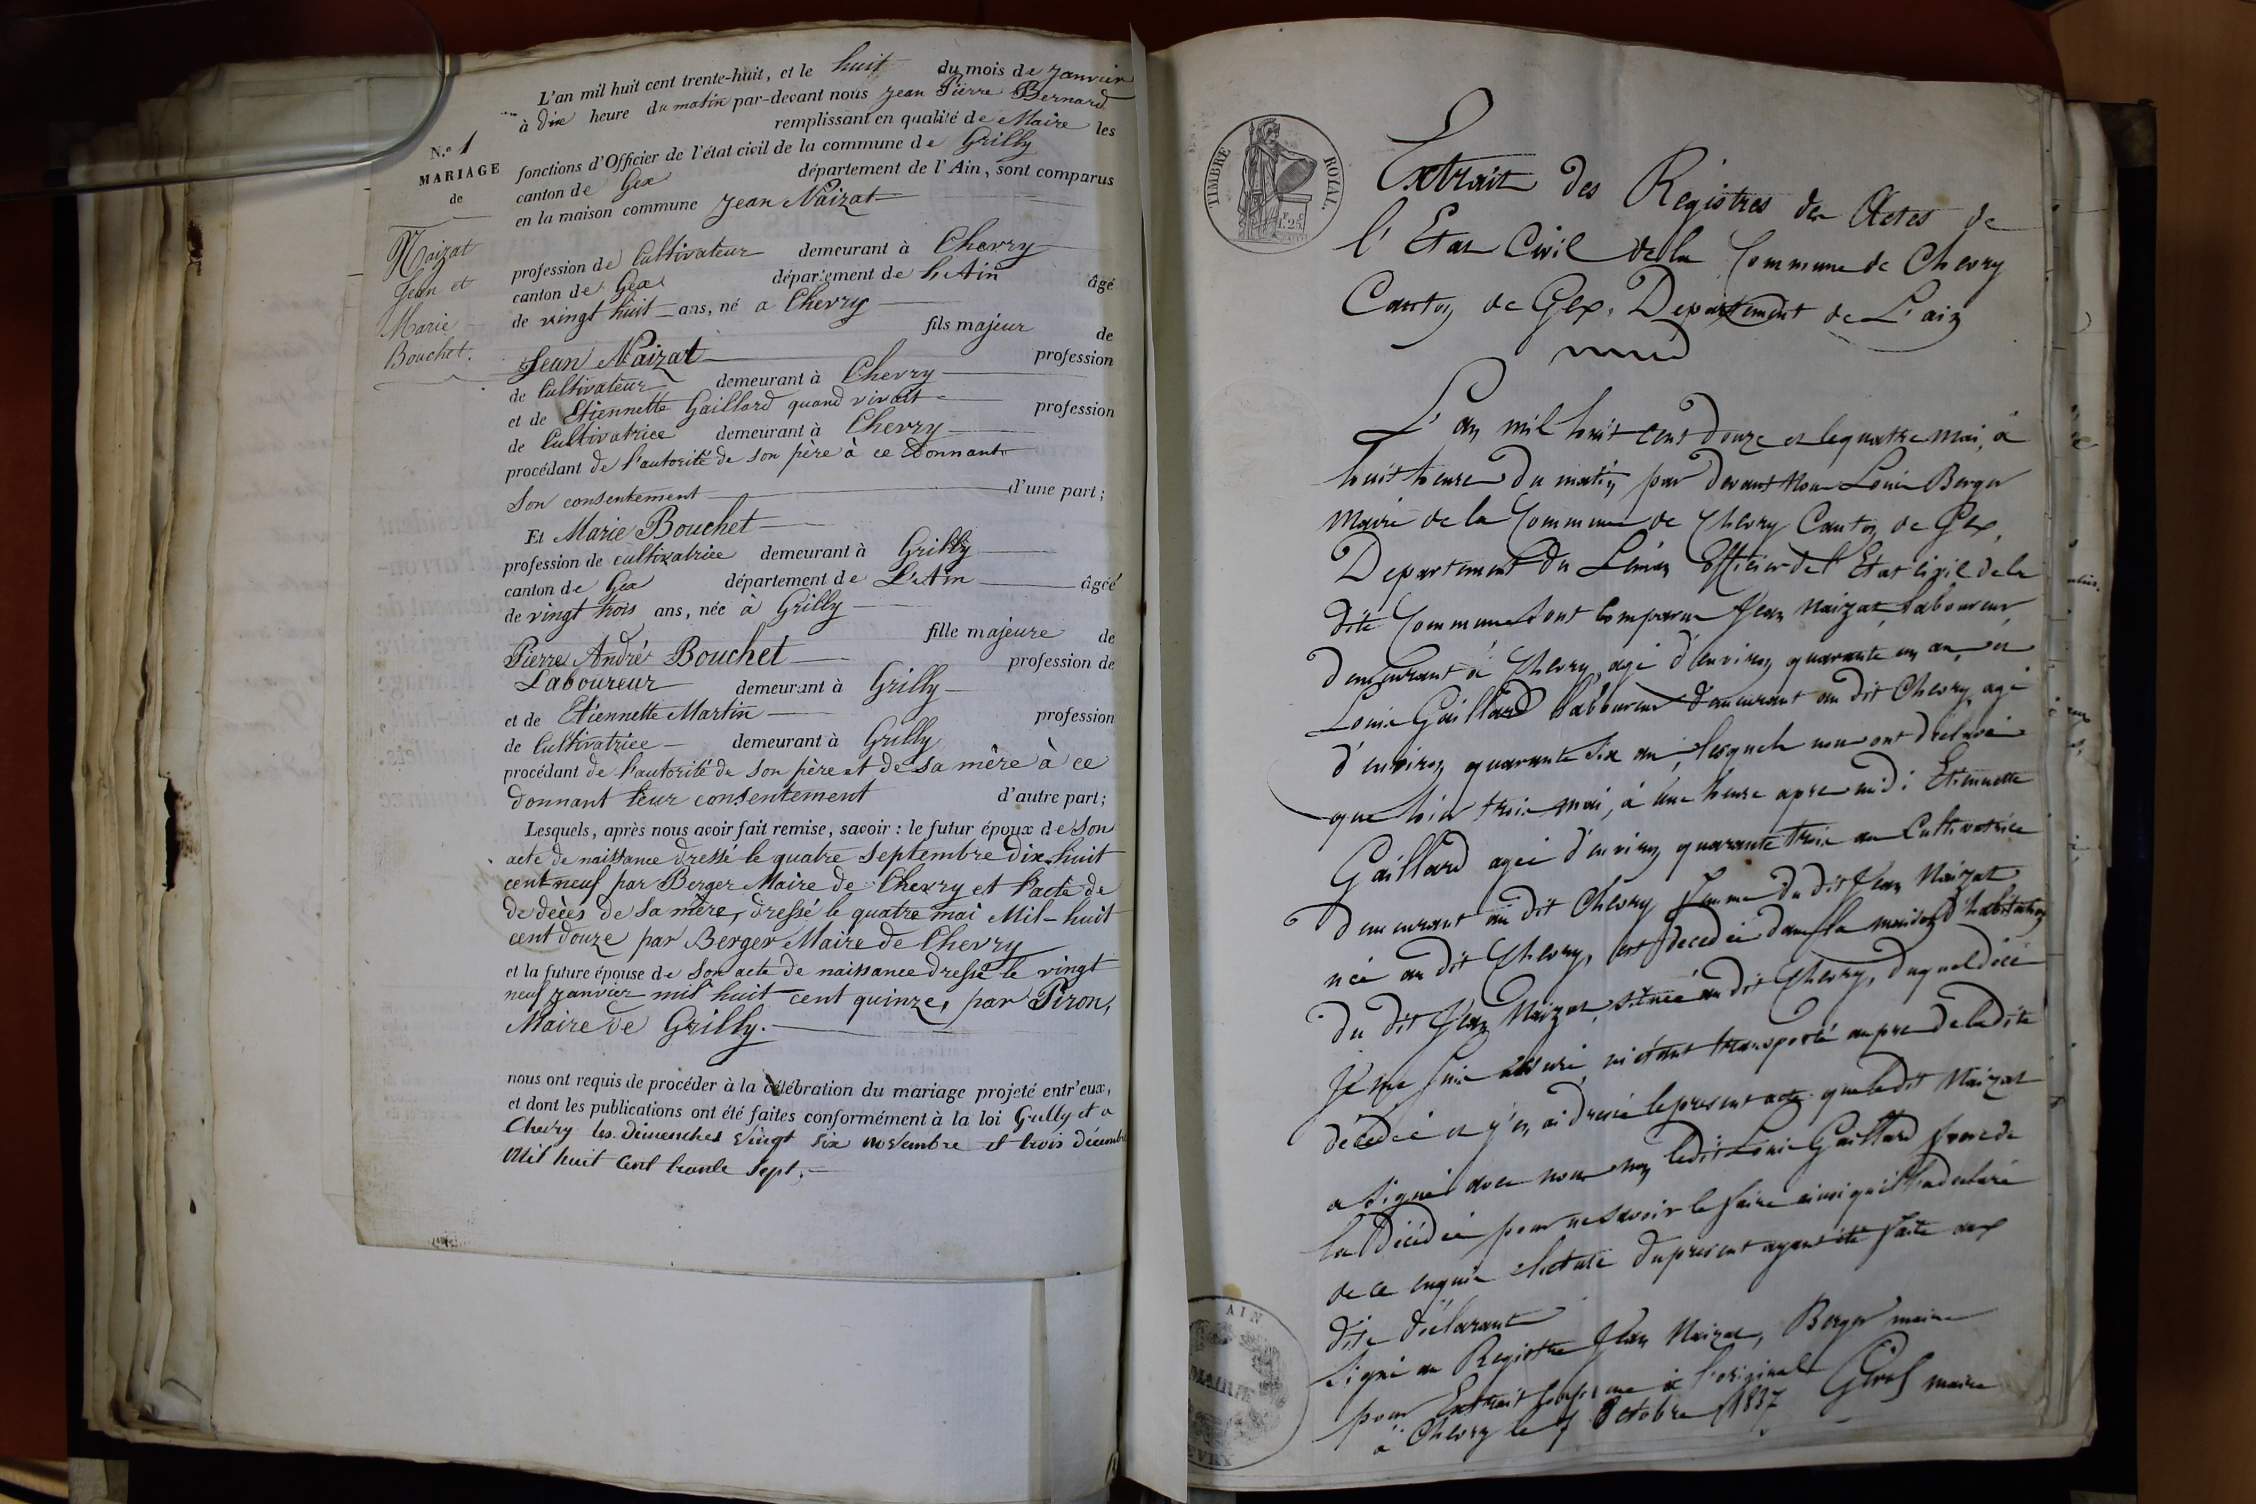 L'an mil huit cent trente-huit, et le huit du mois de janvier
à dix heure du matin par-devant nous Jean Pierre Bernard
remplissant en qualité de Maire les
fonctions d'Officier de l'état civil de la commune de Grilly
canton de Gex département de l'Ain, sont comparus
en la maison commune Jean Naizat
N.º 1
MARIAGE
de
Naizat
Jean et
Marie
Bouchet.
profession de Cultivateur demeurant à Chevry
canton de Gex département de L'Ain âgé
de vingt huit ans, né a Chevry
fils majeur de
Jean Naizat profession
de Cultivateur demeurant à Chevry
et de Etiennette Gaillard quand vivait profession
de Cultivatrice demeurant à Chevry
procédant de l'autorité de son père à ce donnant
son consentement d'une part;
Et Marie Bouchet
profession de cultivatrice demeurant à Grilly
canton de Gex département de L'Ain âgéé
de vingt trois ans, née à Grilly
fille majeure de
Pierre André Bouchet profession de
Laboureur demeurant à Grilly
et de Etiennette Martin profession
de Cultivatrice demeurant à Grilly
procédant de l'autorité de son père et de sa mère à ce
donnant leur consentement d'autre part;
Lesquels, après nous avoir fait remise, savoir: le futur époux de son
acte de naissance dressé le quatre septembre dix huit
cent neuf par Berger Maire de Chevry et l'acte de
de décès de sa mère, dressé le quatre mai Mil-huit
cent douze par Berger Maire de Chevry
et la future épouse de son acte de naissance dressé le vingt
neuf janvier mil huit cent quinze, par Piron,
Maire de Grilly.
nous ont requis de procéder à la célébration du mariage projeté entr'eux,
et dont les publications ont été faites conformément à la loi Grilly et a
Chevry les dimenches vingt six novembre et trois décembre
Mil huit Cent trente sept.
TIMBRE ROYAL.
Extrait des Registres des Actes de
l'Etat Civil de la Commune de Chevry
Canton de Gex, Departement de L'ain
L'an mil huit cent douze et le quatre mai, à
huit heures du matin, par devant Nous Louis Berger
Maire de la Commune de Chevry Canton de Gex,
Departement du Léman Officier de l'Etat civil de la
dite Commune sont comparus Jean Naizat, laboureur
demeurant à Chevry, agé d'environ quarante un an, et
Louis Gaillard laboureur demeurant au dit Chevry agé
d'environ quarante six ans, lesquels nous ont déclaré
que hier trois mai, à une heure apres midi Etiennette
Gaillard agée d'environ quarante trois ans Cultivatrice
demeurant au dit Chevry femme du dit Jean Naizat
née au dit Chevry, est décedée dans la maison d'habitation
du dit Jean Naizat, située au dit Chevry, duquel décé
je me suis assuré, m'étant transporté aupres de la dite
décédée et j'en ai dressé le present acte que le dit Naizat
a signé avec nous non le dit Louis Gaillard frere de
la décédée pour ne savoir le faire ainsi qu'il l'a declaré
de ce enquis lecture du present ayant été faite aux
dits déclarants
Signé au Registre Jean Naizat, Berger maire
pour Extrait conforme à l'original
à Chevry le 7 Octobre 1837 maire
AIN
MAIRIE